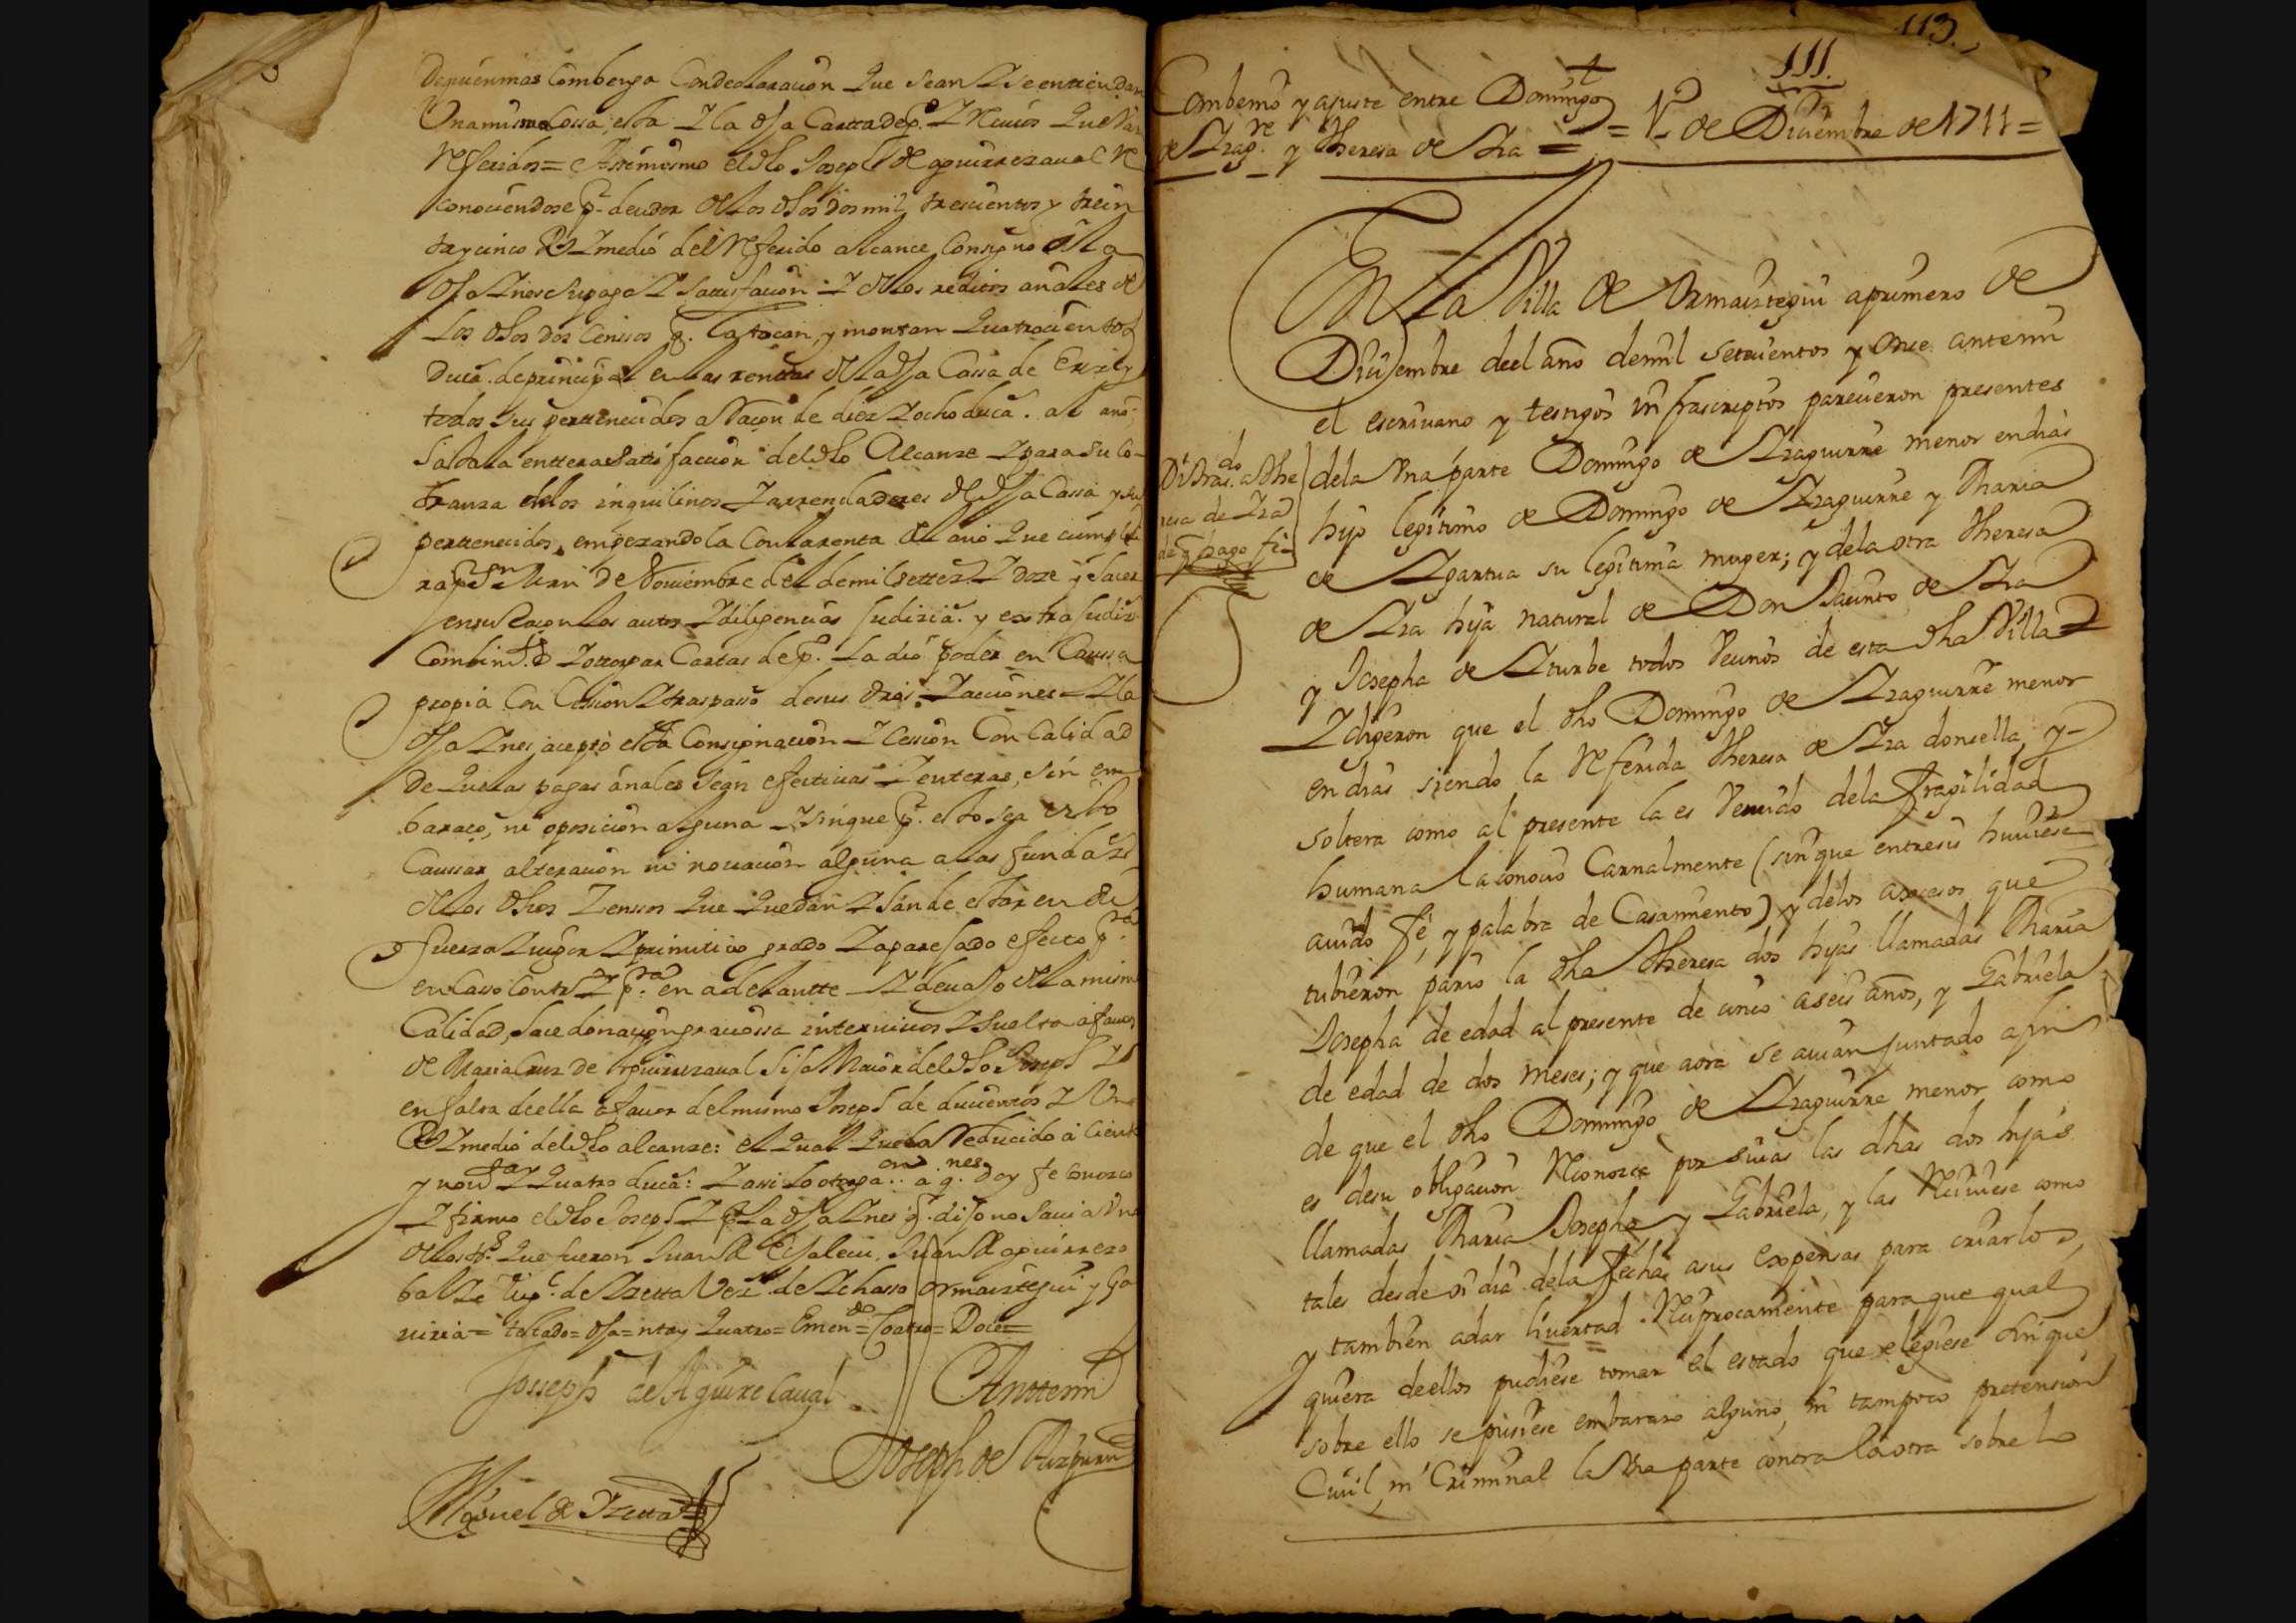 de quien mas Combenga Con declaracion Que sean Y se entiendan
Una misma Cossa, esta Y la dha Carta de p.º Y Recivos Que Van
Referidos = Assimismo el dho Joseph de aguirrezaual Re
conociendose p.r deudor de los dhos dos mil trescientos y trein
ta y cinco Rs Y medio del Referido alcance, Consigno a la
dha Ynes su paga Y Satisfacion Y de los reditos anales de
Los dhos dos Censsos q. la tocan, y montan Quatrocientos
Duca. de principal en las rentas de la dha Cassa de
todos sus pertenecidos a Racon de diez Y ocho duca. al año,
hasta la enttera Satisfaccion del dho Alcanze Y para su Co-
branza de los inquilinos Y arrendadores de dha Cassa y sus
pertenecidos, empezando la Con la renta del año Que cumpli
ra p.r Sn Mrn de Noviembre del de mil settez.s Y doze y hacer
en su Racon los autos Y diligencias Judizia. y extrajudiz.
Combin.tes Y ottorgar Cartas de p.º La dio poder en Caussa
propia Con Cession Y traspasso de sus dros. Y acciones Y la
dha Ynes, acepto esta Consignacion Y Cession Con Calidad
de Que las pagas anales sean efectivas Y enteras, sin em
barazo, ni oposicion alguna Y sin que p.r esto sea visto
Caussar alteracion ni novacion alguna a las fundaz.s
de los dhos Zensos Que Quedan Y han de estar en su
fuerza Y vigor Y primitivo grado Y aparejado efecto p.ra
en Casso Contr.º Y p.ra en adelantte Y devajo de la misma
Calidad, hace donacion graciossa intervivos Y suelta a favor
de Maria Cruz de aguirrezaual hija Maior del dho Joseph Y
en falta de ella a favor del mismo Joseph de ducientos Y Un
Rs Y medio del dho alcanze: el Qual Queda Reducido a Ciento
y nov.ta Y Quatro duca: Y assi lo otorga.on a q.nes doy fe conozco
Y firmo el dho Joseph Y p.r la dha Ynes q. dijo no savia Uno
de los t.gos Que fueron Juan de Juan de aguirreza
bal de Lug.r de Ezetta Vez.s de Ychasso Ormaiztegui y Ga
viria = testado = dha = nta y Quatro = Emen.do = Coatro = Doce =
Josseph de Aguirreçaual
Antemi
Joseph de
Miguel de Yzetta
113.
111.
Combenio y ajuste entre Domingo
de Yrag.re y Theresa de Yza = = 1.º de Diciembre de 1711 =
En La Villa de Ormaiztegui a primero de
Diciembre de el año de mil setecientos y onze ante mi
el escriuano y testigos infrascriptos parecieron presentes
de la Vna parte Domingo de Yraguirre menor en dias
hijo legitimo de Domingo de Yraguirre y Maria
de Ygartua su legitima muger; y de la otra Theresa
de Yza hija natural de Don Jacinto de Yza
y Josepha de Yturbe todos Vecinos de esta dha Villa
Y digeron que el dho Domingo de Yraguirre menor
en dias siendo la Referida Theresa de Yza donsella, y
soltera como al presente la es Venido de la Fragilidad
humana la conocio Carnalmente (sin que entre sus huuiese
auido fé, y palabra de Casamiento) y de los accesos que
tubieron pario la dha Theresa dos hijas llamadas Maria
Josepha de edad al presente de cinco a seis años, y Gabriela
de edad de dos meses; y que aora se auian juntado a fin
de que el dho Domingo de Yraguirre menor como
es de su obligacion Reconozca por suias las dhas dos hijas
llamadas Maria Josepha, y Gabriela, y las Reciuiese como
tales desde oi dia de la fecha a sus expensas para criarlos,
y tambien a dar liuertad Reciprocamente para que qual
quiera de ellos pudiese tomar el estado que eligiese sin que
sobre ello se pusiese embarazo alguno, ni tampoco pretension
Ciuil, ni Criminal la Vna parte contra la otra sobre lo
Di tras.do a The
resa de Yza
de q. hago fé